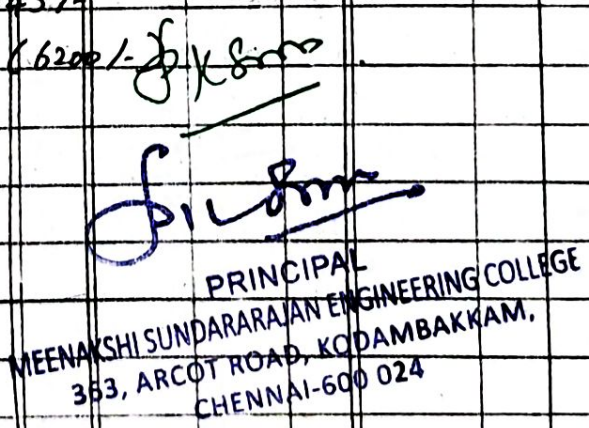 6200/-
PRINCIPAL
MEENAKSHI SUNDARARAJAN ENGINEERING COLLEGE
363, ARCOT ROAD, KODAMBAKKAM,
CHENNAI-600 024